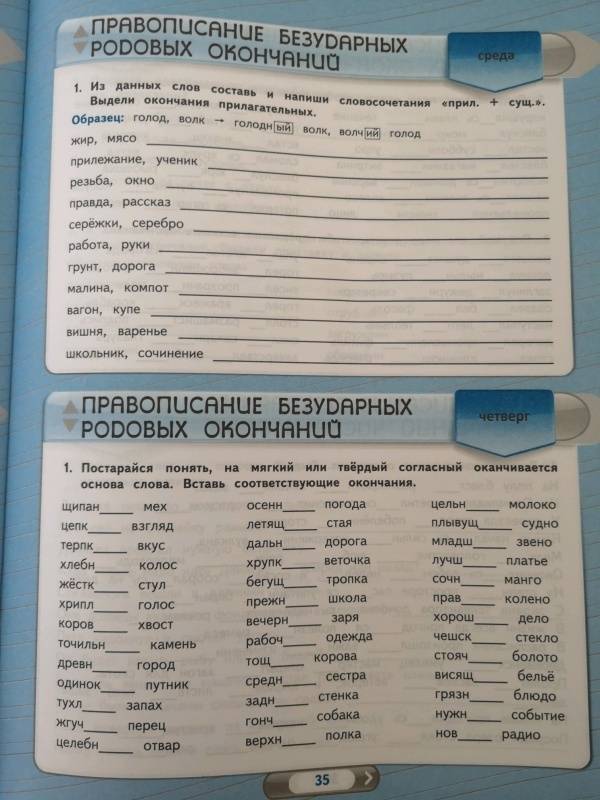 ПРАВОПИСАНИЕ БЕЗУДАРНЫХ
РОДОВЫХ ОКОНЧАНИЙ
среда
1. Из данных слов составь и напиши словосочетания «прил. + сущ.».
Выдели окончания прилагательных.
Образец: голод, волк → голодный волк, волчий голод
жир, мясо
прилежание, ученик
резьба, окно
правда, рассказ
серёжки, серебро
работа, руки
грунт, дорога
малина, компот
вагон, купе
вишня, варенье
школьник, сочинение
ПРАВОПИСАНИЕ БЕЗУДАРНЫХ
РОДОВЫХ ОКОНЧАНИЙ
четверг
1. Постарайся понять, на мягкий или твёрдый согласный оканчивается
основа слова. Вставь соответствующие окончания.
щипан____ мех
цепк____ взгляд
терпк____ вкус
хлебн____ колос
жёстк____ стул
хрипл____ голос
коров____ хвост
точильн____ камень
древн____ город
одинок____ путник
тухл____ запах
жгуч____ перец
целебн____ отвар
осенн____ погода
летящ____ стая
дальн____ дорога
хрупк____ веточка
бегущ____ тропка
прежн____ школа
вечерн____ заря
рабоч____ одежда
тощ____ корова
средн____ сестра
задн____ стенка
гонч____ собака
верхн____ полка
цельн____ молоко
плывущ____ судно
младш____ звено
лучш____ платье
сочн____ манго
прав____ колено
хорош____ дело
чешск____ стекло
стояч____ болото
висящ____ бельё
грязн____ блюдо
нужн____ событие
нов____ радио
35